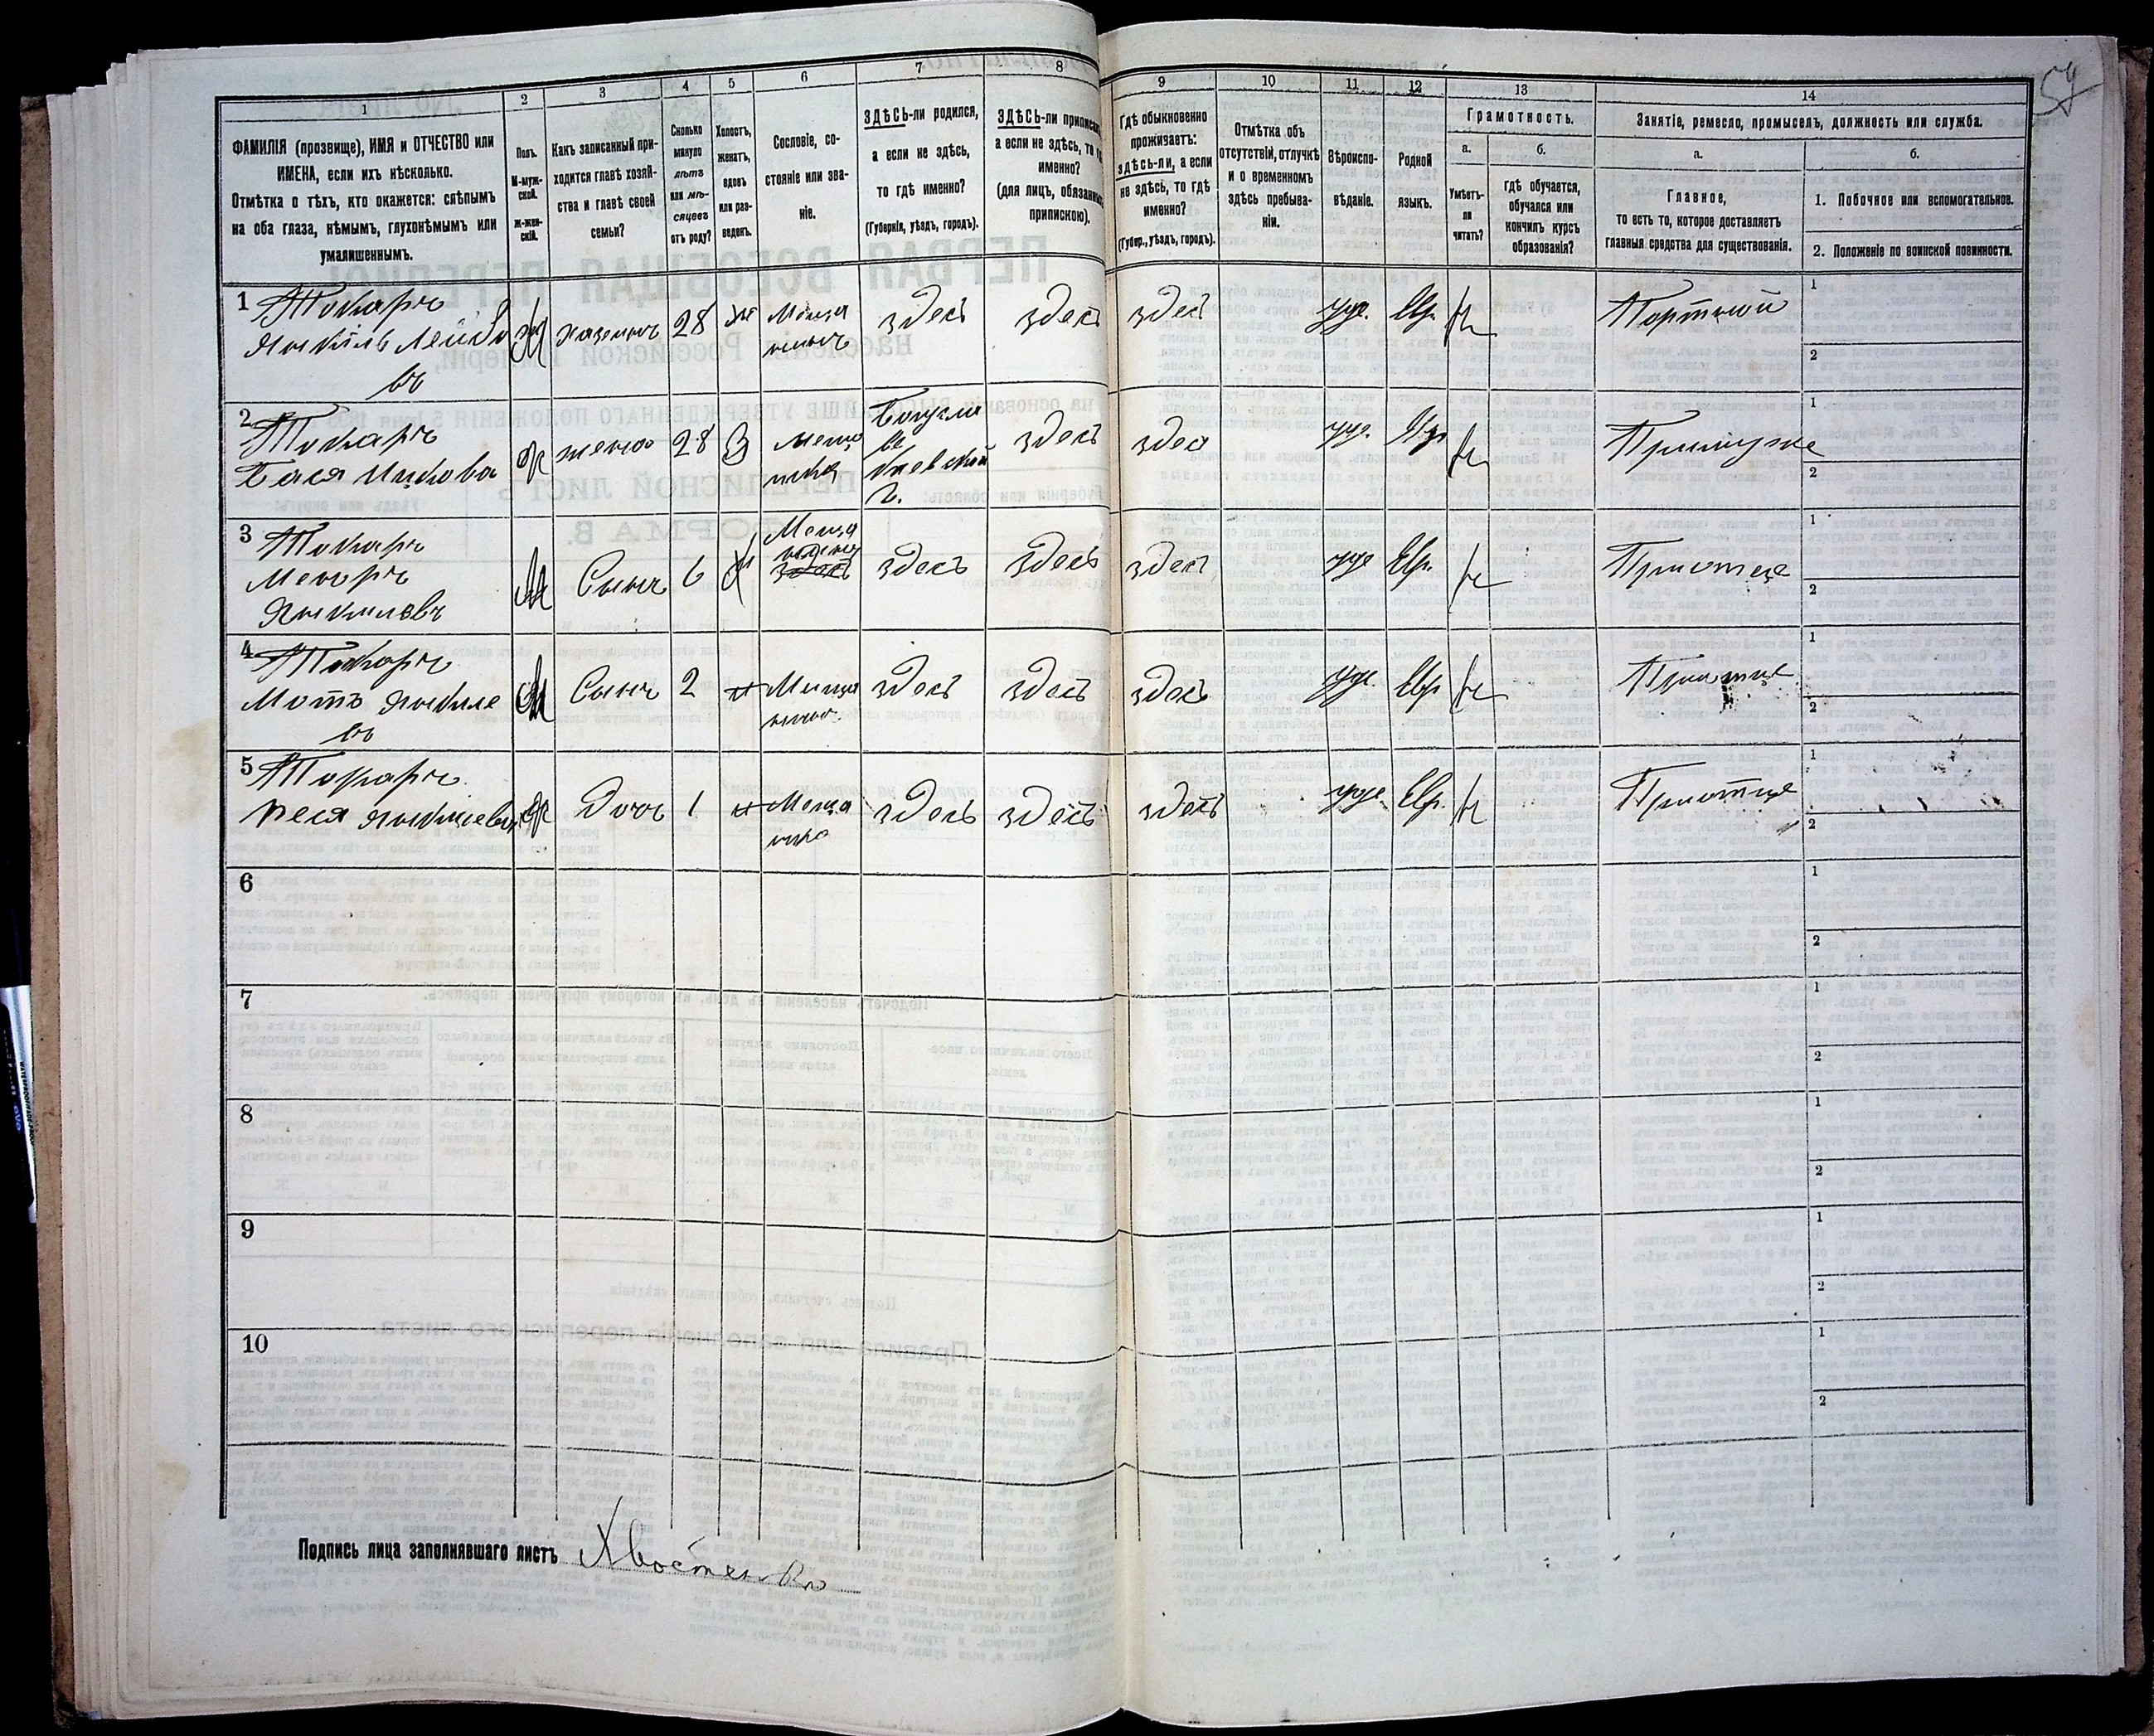 57
1
2
3
4
5
6
7
8
9
10
11
12
13
14
ФАМИЛІЯ (прозвище), ИМЯ и ОТЧЕСТВО или
ИМЕНА, если ихъ нѣсколько.
Отмѣтка о тѣхъ, кто окажется: слѣпымъ
на оба глаза, нѣмымъ, глухонѣмымъ или
умалишеннымъ.
Полъ.
М-муж-
ской.
ж-жен-
скій.
Какъ записанный при-
ходится главѣ хозяй-
ства и главѣ своей
семьи?
Сколько
минуло
лѣтъ
или мѣ-
сяцевъ
отъ роду?
Холостъ,
женатъ,
вдовъ
или раз-
веденъ.
Сословіе, со-
стояніе или зва-
ніе.
ЗДѢСЬ-ли родился,
а если не здѣсь,
то гдѣ именно?
(Губернія, уѣздъ, городъ).
ЗДѢСЬ-ли приписан
а если не здѣсь, то г
именно?
(для лицъ, обязанны
припискою).
Гдѣ обыкновенно
проживаетъ:
здѣсь-ли, а если
не здѣсь, то гдѣ
именно?
(Губер., уѣздъ, городъ).
Отмѣтка объ
отсутствіи, отлучкѣ
и о временномъ
здѣсь пребыва-
ніи.
Вѣроиспо-
вѣданіе.
Родной
языкъ.
Грамотность.
а.
Умѣетъ-
ли
читать?
б.
Гдѣ обучается,
обучался или
кончилъ курсъ
образованія?
Занятіе, ремесло, промыселъ, должность или служба.
а.
Главное,
то есть то, которое доставляетъ
главныя средства для существованія.
б.
1. Побочное или вспомогательное.
2. Положеніе по воинской повинности.
1 Токарь
Янкель Лейбо
въ
М хозяинъ 28 ж Меща
нинъ
здесь здесь здесь иуде. Евр. н Портной
1
2
2 Токарь
Бася Ицкова
ж жена 28 З меща
нка
Богусла
в
Киевской
г.
здесь здес иуде. Евр н При муже
1
2
3 Токарь
Меноръ
Янкилевъ
М Сынъ 6 х Меща
нинъ
здесь здесь здесь иуде Евр. н При отце
1
2
4 Токарь
Мотъ Янкиле
въ
М Сынъ 2 х Меща
нинъ.
здесь здесь здесь иуде. Евр н При отце
1
2
5 Токарь
Песя Янкилева
ж Дочь 1 х Меща
нка
здесь здесь здесь иуде Евр. н При отце
1
2
6
1
2
7
1
2
8
1
2
9
1
2
10
1
2
Подпись лица заполнявшаго листъ Хвостенко